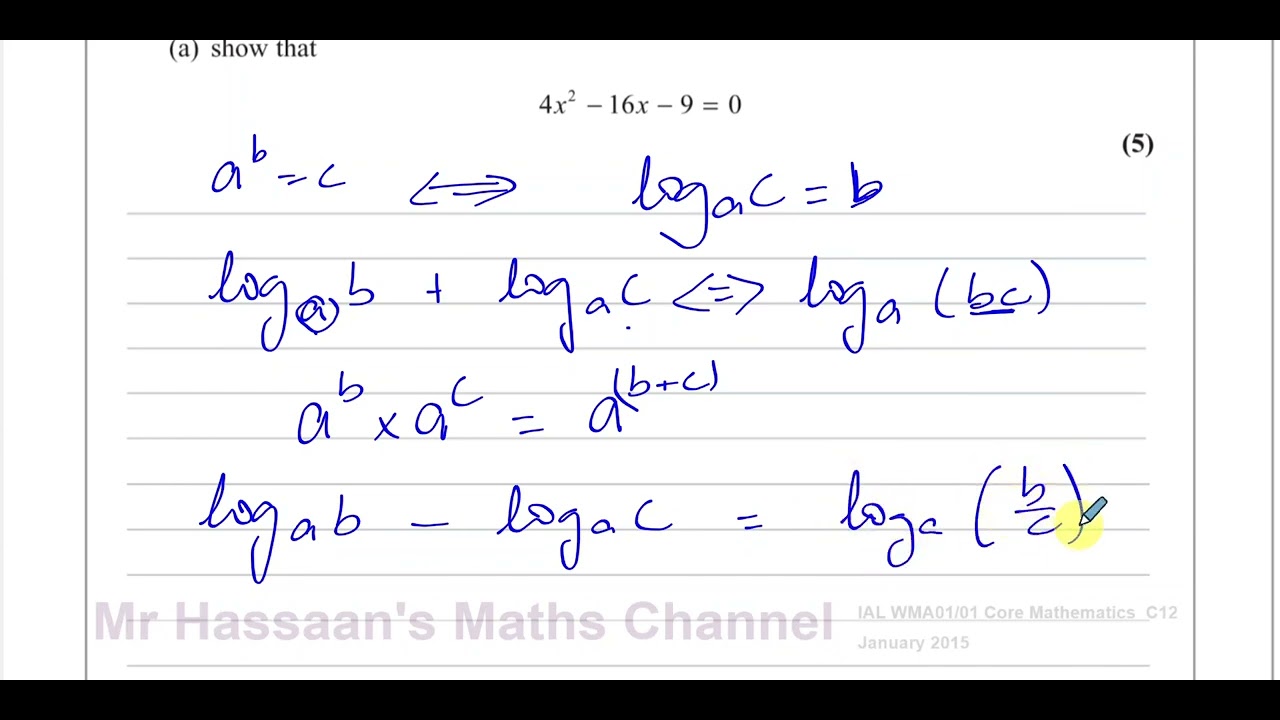 (a) show that
4x² − 16x − 9 = 0
(5)
aᵇ = c ⟺ logₐ c = b
logₐ b + logₐ c <=> logₐ (bc)
aᵇ × aᶜ = a⁽ᵇ⁺ᶜ⁾
logₐ b − logₐ c = logₐ (b/c)
Mr Hassaan's Maths Channel
IAL WMA01/01 Core Mathematics C12
January 2015